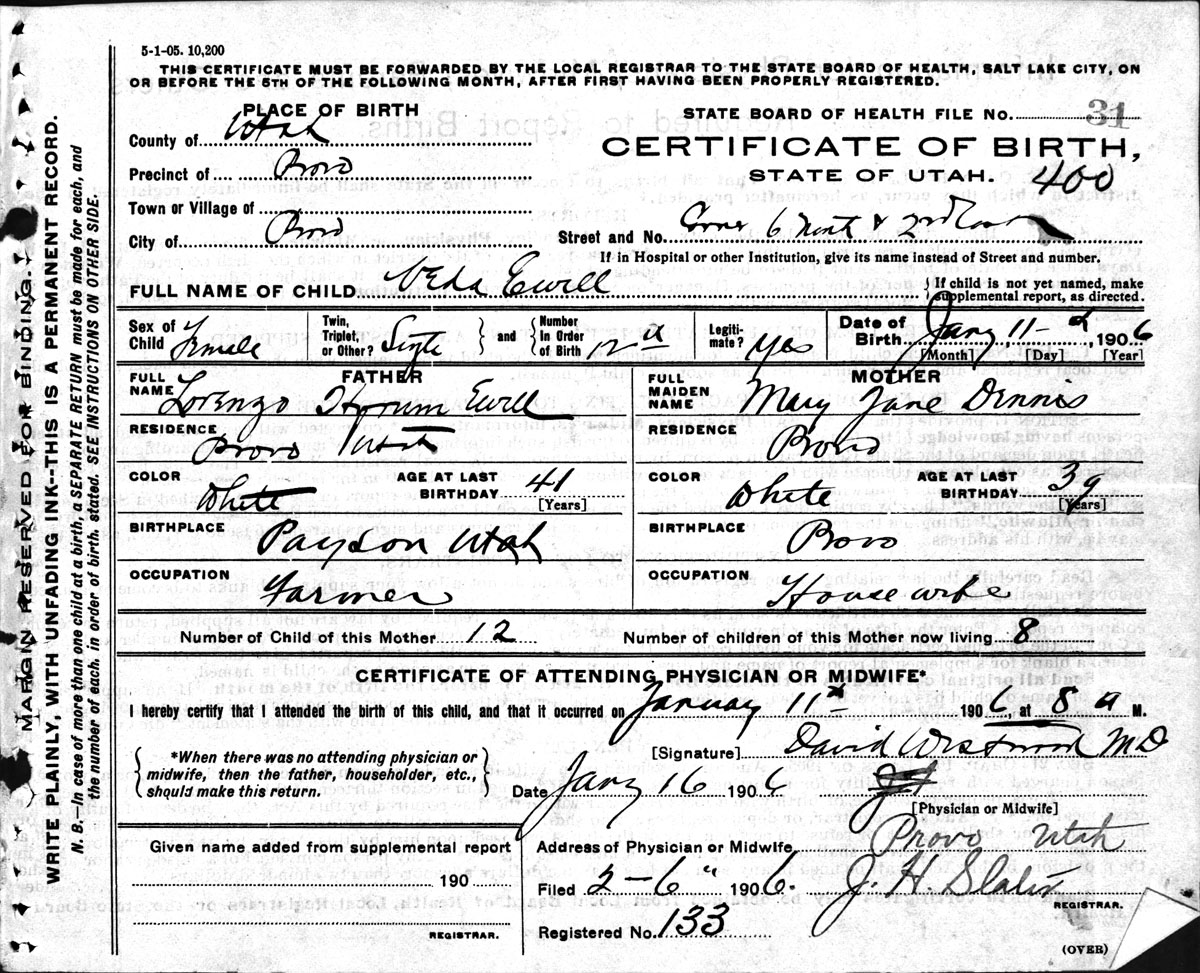 5-1-05. 10,200
THIS CERTIFICATE MUST BE FORWARDED BY THE LOCAL REGISTRAR TO THE STATE BOARD OF HEALTH, SALT LAKE CITY, ON
OR BEFORE THE 5TH OF THE FOLLOWING MONTH, AFTER FIRST HAVING BEEN PROPERLY REGISTERED.
PLACE OF BIRTH
County of Utah
Precinct of Provo
Town or Village of
City of Provo
STATE BOARD OF HEALTH FILE NO. 31
CERTIFICATE OF BIRTH,
STATE OF UTAH. 400
Street and No. Corner 6 North & 2nd
If in Hospital or other Institution, give its name instead of Street and number.
FULL NAME OF CHILD Veda Ewell
{If child is not yet named, make
supplemental report, as directed.
Sex of Child Female
Twin, Triplet, or Other? Single } and { Number In Order of Birth 12th
Legitimate? Yes
Date of Birth Jany 11th, 1906
[Month] [Day] [Year]
FATHER
FULL NAME Lorenzo Hyrum Ewell
RESIDENCE Provo Utah
COLOR White
AGE AT LAST BIRTHDAY 41
[Years]
BIRTHPLACE Payson Utah
OCCUPATION Farmer
MOTHER
FULL MAIDEN NAME Mary Jane Dennis
RESIDENCE Provo
COLOR White
AGE AT LAST BIRTHDAY 39
[Years]
BIRTHPLACE Provo
OCCUPATION Housewife
Number of Child of this Mother 12
Number of children of this Mother now living 8
CERTIFICATE OF ATTENDING PHYSICIAN OR MIDWIFE*
I hereby certify that I attended the birth of this child, and that it occurred on January 11th 1906, at 8 a M.
{*When there was no attending physician or
midwife, then the father, householder, etc.,
should make this return.}
[Signature] David Westwood MD
Date Jany 16 1906
[Physician or Midwife]
Address of Physician or Midwife Provo Utah
Given name added from supplemental report
190
REGISTRAR.
Filed 2-6" 1906. J. H. Slater
REGISTRAR.
Registered No. 133
(OVER)
MARGIN RESERVED FOR BINDING.
WRITE PLAINLY, WITH UNFADING INK--THIS IS A PERMANENT RECORD.
N. B.—In case of more than one child at a birth, a SEPARATE RETURN must be made for each, and
the number of each, in order of birth, stated. SEE INSTRUCTIONS ON OTHER SIDE.